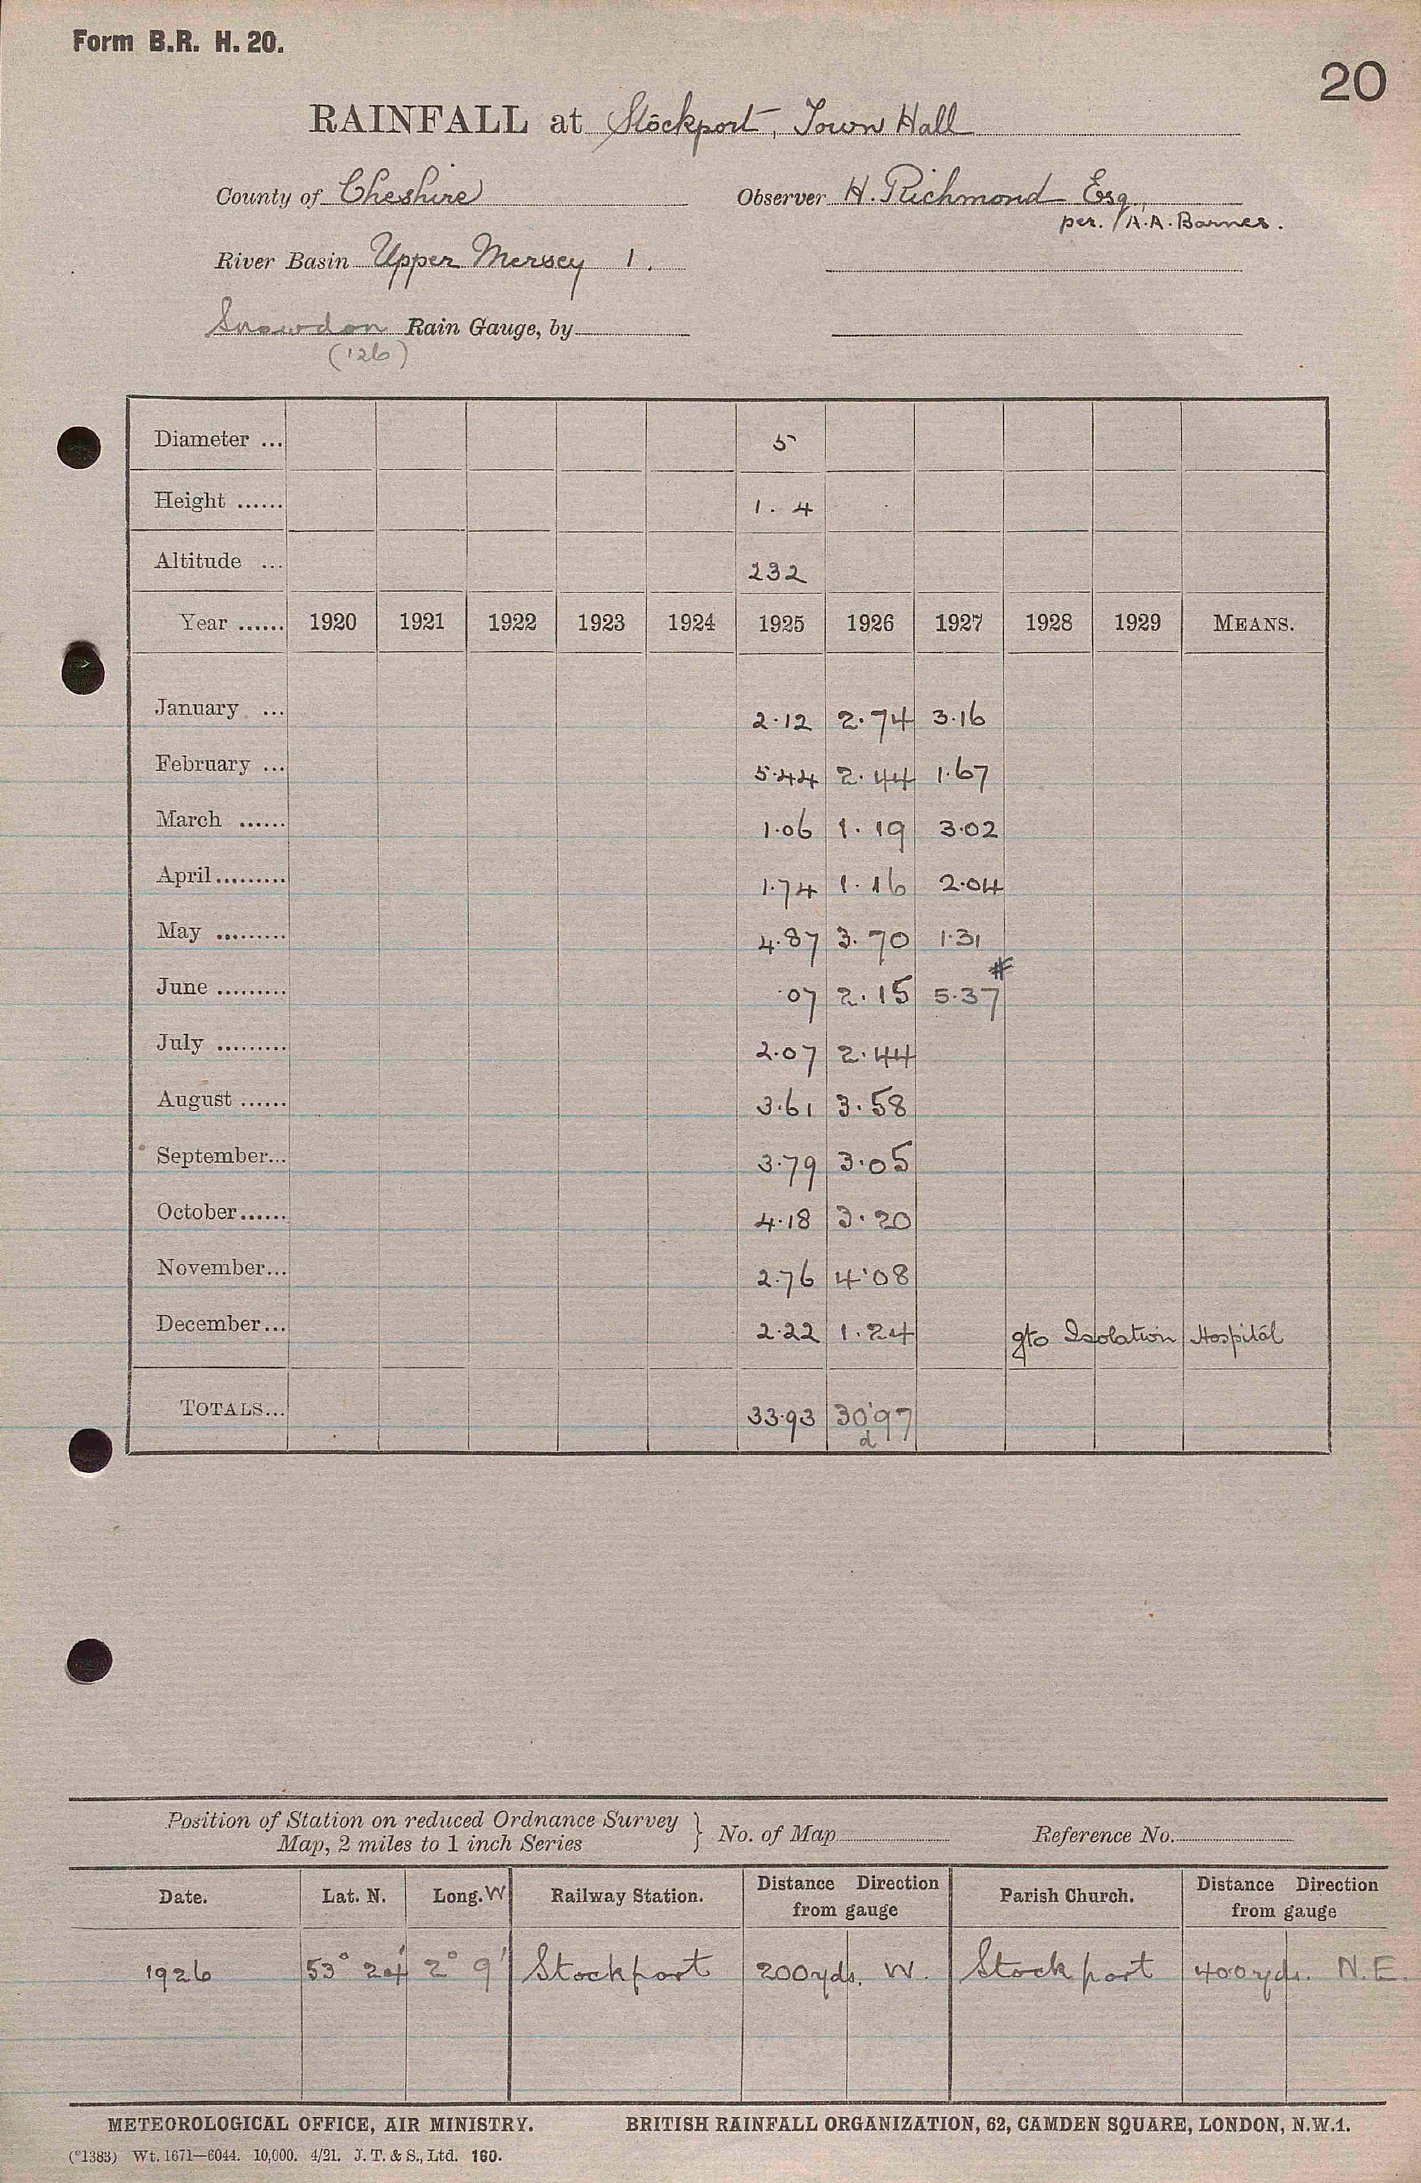 Form B.R. H. 20.
20
RAINFALL at Stockport, Town Hall
County of Cheshire Observer H. Richmond Esq.,
per. A.A. Barnes.
River Basin Upper Mersey 1.
Snowdon Rain Gauge, by
('26)
Diameter ... 5
Height ...... 1. 4
Altitude ... 232
Year ...... 1920 1921 1922 1923 1924 1925 1926 1927 1928 1929 MEANS.
January ... 2.12 2.74 3.16
February ... 5.44 2.44 1.67
March ...... 1.06 1.19 3.02
April ......... 1.74 1.16 2.04
May ......... 4.87 3.70 1.31
June ......... .07 2.15 5.37 #
July ......... 2.07 2.44
August ...... 3.61 3.58
September... 3.79 3.05
October ...... 4.18 3.20
November... 2.76 4.08
December... 2.22 1.24 gto Isolation Hospital
TOTALS... 33.93 30.97
d
Position of Station on reduced Ordnance Survey
Map, 2 miles to 1 inch Series } No. of Map Reference No.
Date. Lat. N. Long. W Railway Station. Distance Direction from gauge Parish Church. Distance Direction from gauge
1926 53° 24' 2° 9' Stockport 200 yds. W. Stockport 400 yds. N.E.
METEOROLOGICAL OFFICE, AIR MINISTRY. BRITISH RAINFALL ORGANIZATION, 62, CAMDEN SQUARE, LONDON, N.W.1.
(*1383) Wt. 1671—6044. 10,000. 4/21. J. T. & S., Ltd. 160.